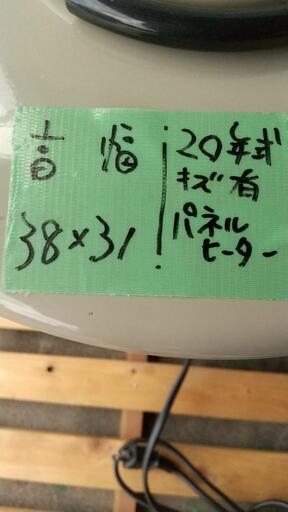 高 幅
38×31
20年式
キズ有
パネル
ヒーター